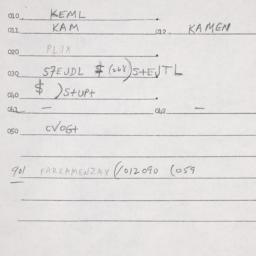 010 KEML
011 KAM 012 KAMEN
020 PLJX
030 S7EVDL $ (268) S+EVTL
040 $ ) S+UP+
042 — 043 —
050 CVOG+
901 PARCAMENZAY (/012090 (059